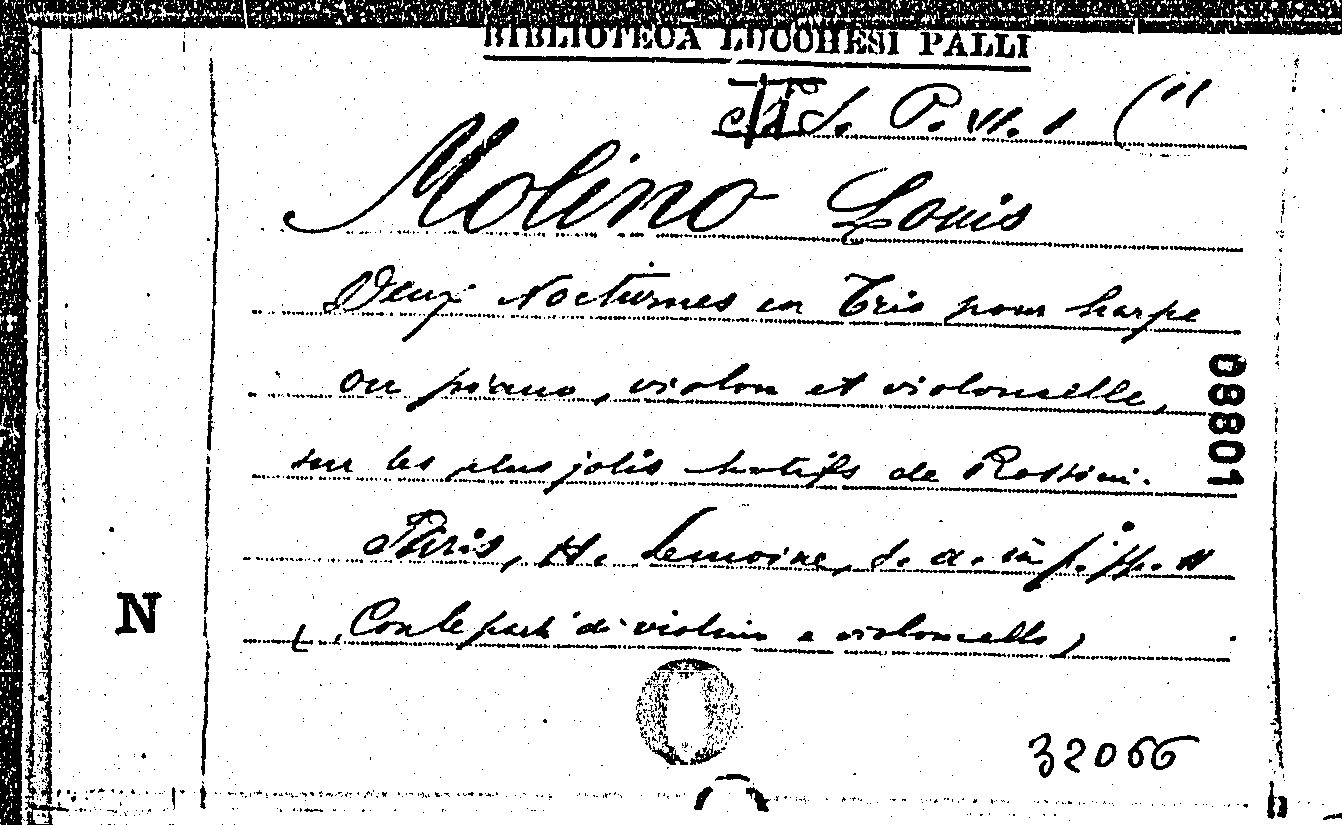 BIBLIOTECA LUCCHESI PALLI
Molino Louis
Deux Nocturnes en Trio pour harpe
ou piano, violon et violoncelle,
sur les plus jolis motifs de Rossini.
Paris, H. Lemoine, s. a. in f. pp. 11
(Con le parti di violino e violoncello)
08801
N
32066